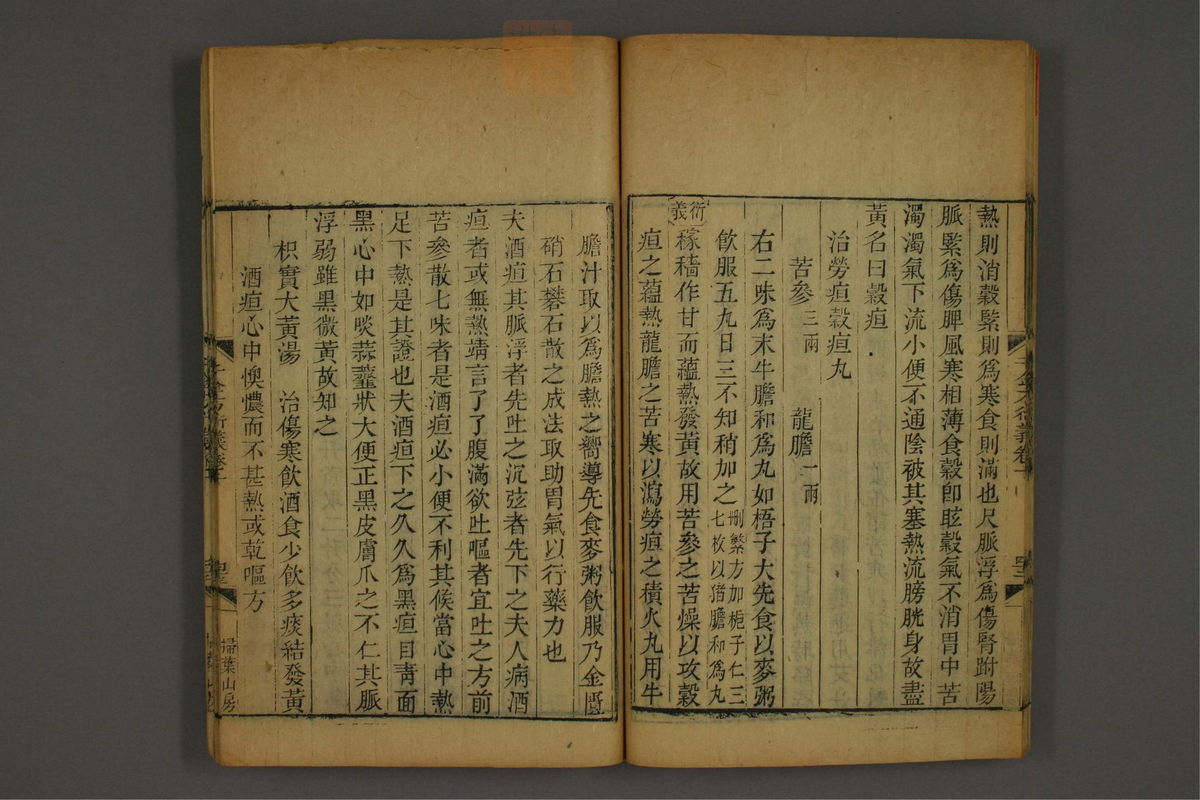 熱則消穀緊則爲寒食則滿也尺脈浮爲傷腎趺陽
脈緊爲傷脾風寒相薄食穀卽眩穀氣不消胃中苦
濁濁氣下流小便不通陰被其塞熱流膀胱身故盡
黃名曰穀疸
治勞疸穀疸丸
苦參三兩　龍膽一兩
右二味爲末牛膽和爲丸如梧子大先食以麥粥
飮服五丸日三不知稍加之刪繁方加梔子仁三
七枚以猪膽和爲丸
衍義
稼穡作甘而蘊熱發黃故用苦參之苦燥以攻穀
疸之蘊熱龍膽之苦寒以瀉勞疸之積火丸用牛
膽汁取以爲膽熱之嚮導先食麥粥飮服乃金匱
硝石礬石散之成法取助胃氣以行藥力也
夫酒疸其脈浮者先吐之沉弦者先下之夫人病酒
疸者或無熱靖言了了腹滿欲吐嘔者宜吐之方前
苦參散七味者是酒疸必小便不利其候當心中熱
足下熱是其證也夫酒疸下之久久爲黑疸目靑面
黑心中如啖蒜虀狀大便正黑皮膚爪之不仁其脈
浮弱雖黑微黃故知之
枳實大黃湯　治傷寒飮酒食少飮多痰結發黃
酒疸心中懊憹而不甚熱或乾嘔方
千金方衍義卷十
掃葉山房